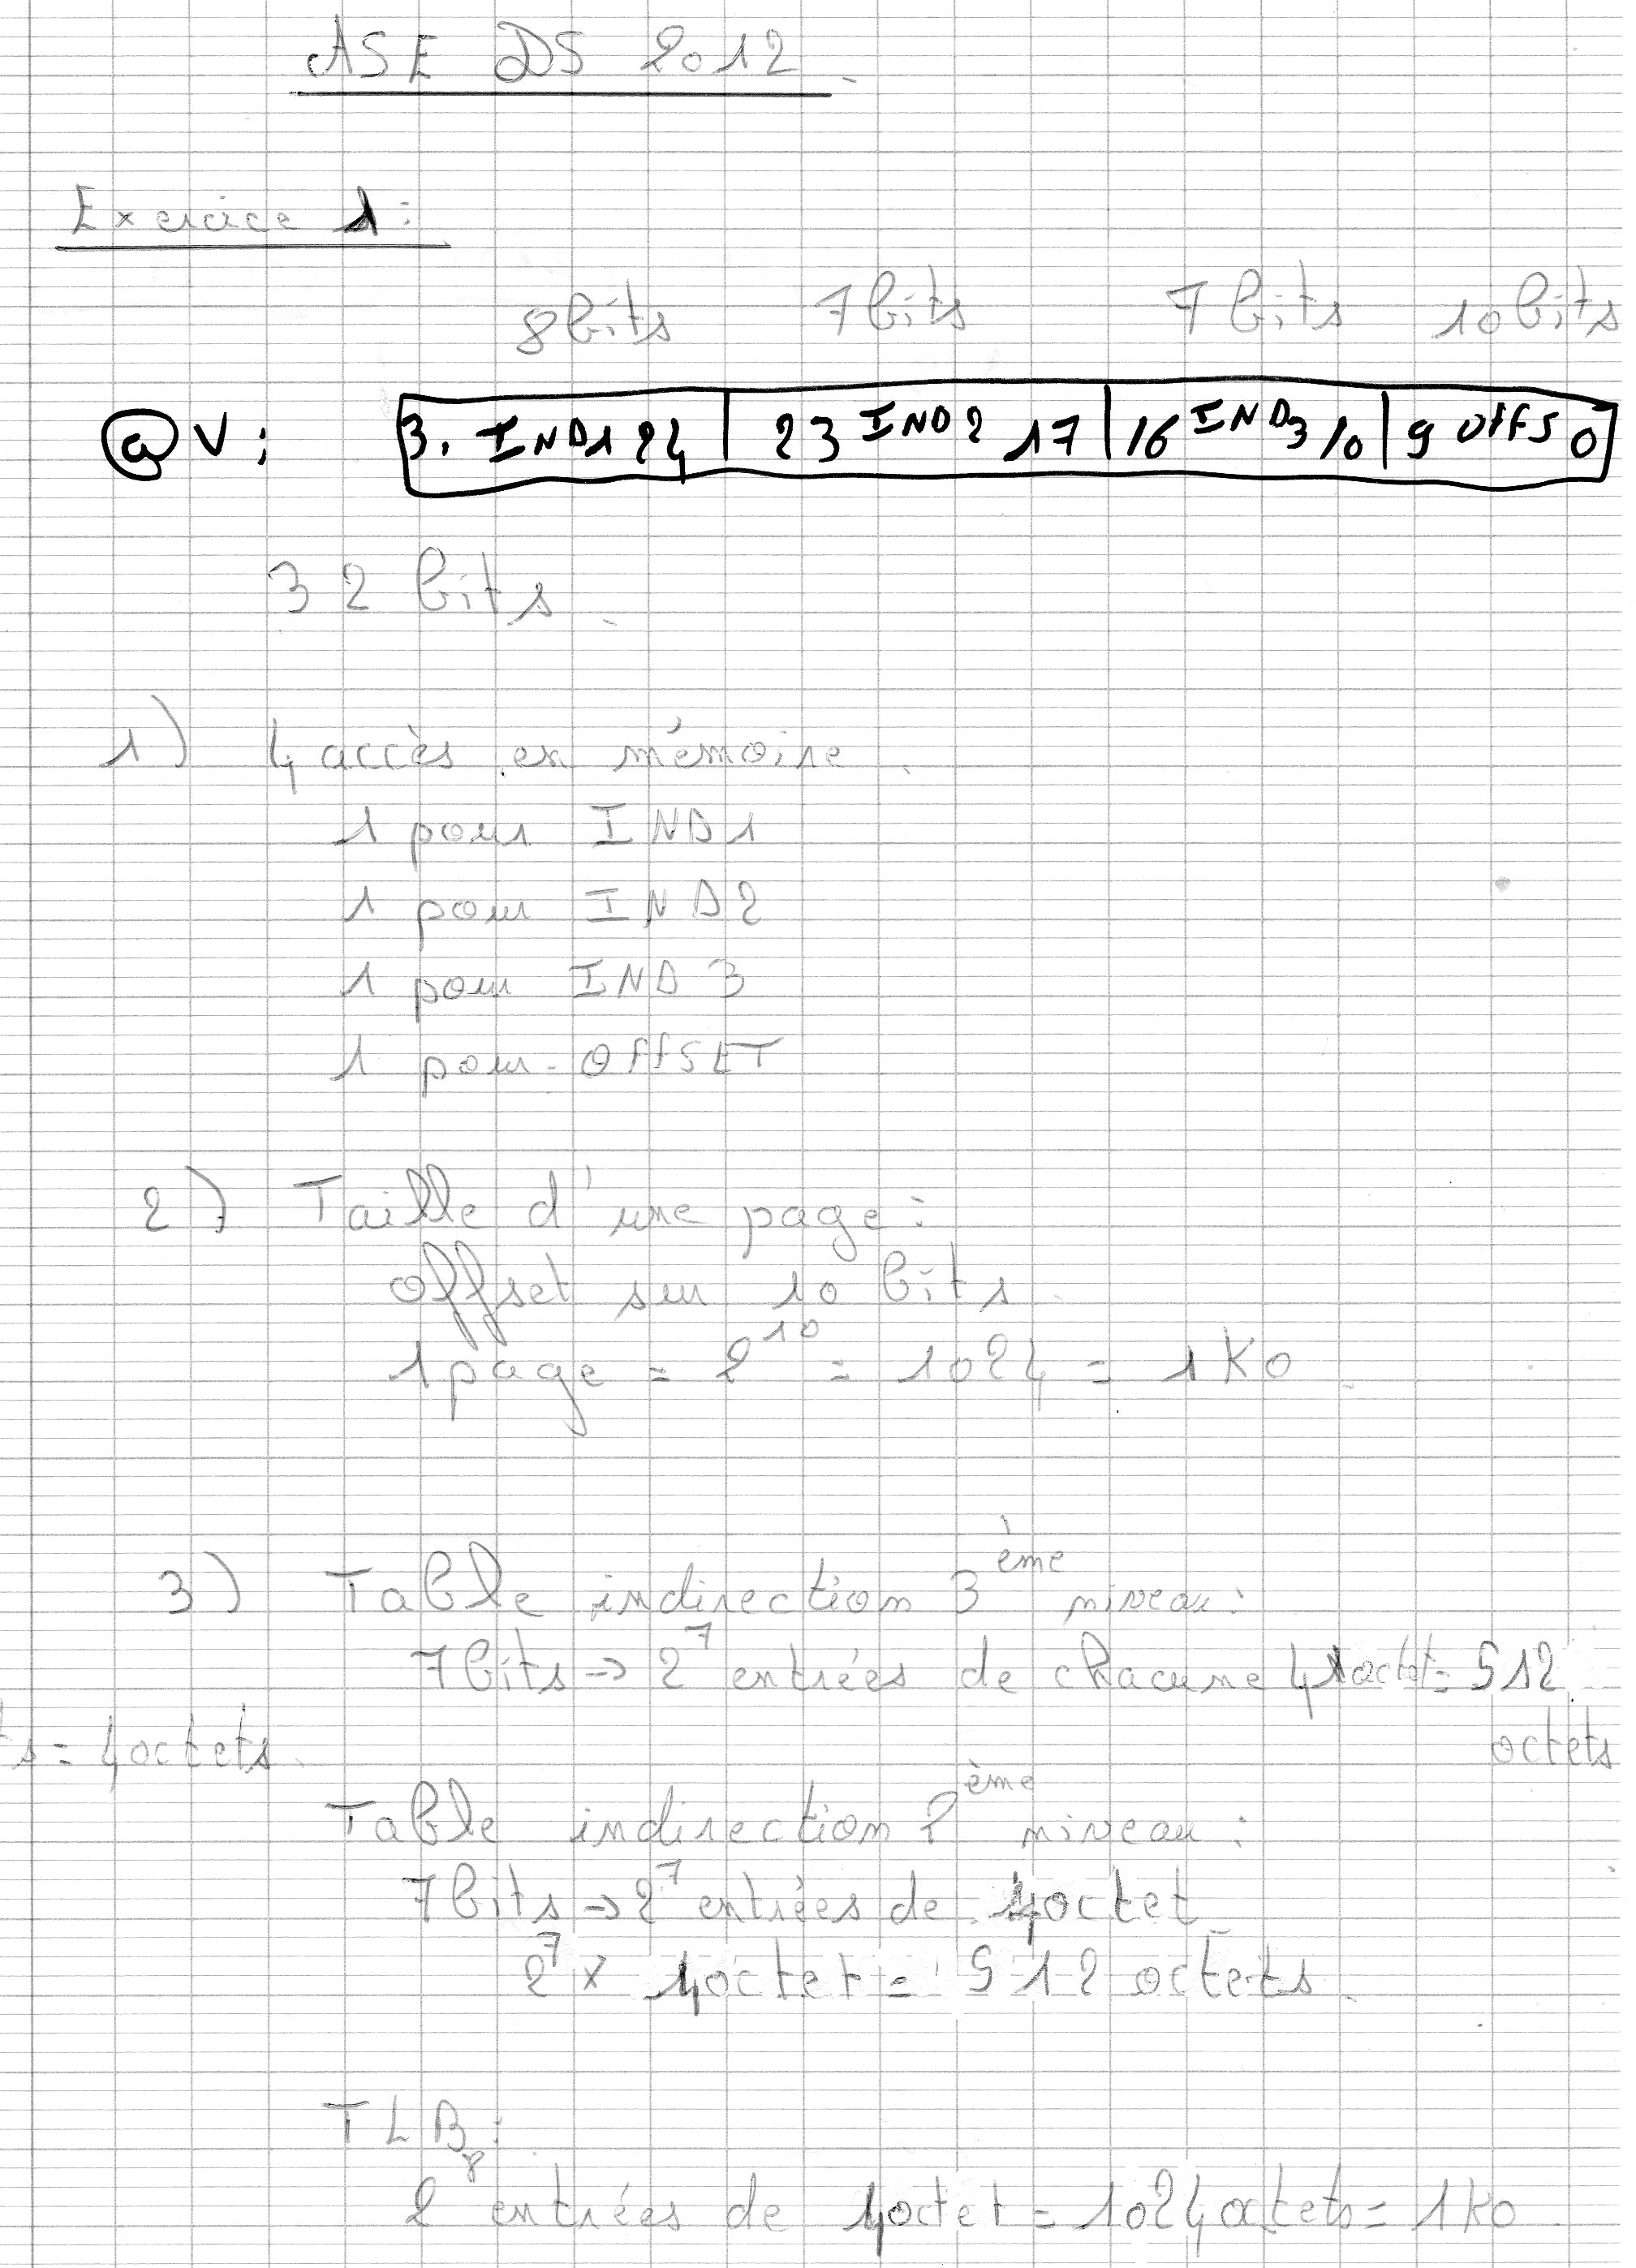 ASE DS 2012
Exercice 1:
8bits 7bits 7bits 10bits
@V: 3. IND1 24 | 23 IND2 17 | 16 IND3 10 | 9 OffS 0
32 bits
1) 4 accès en mémoire.
1 pour IND1
1 pour IND2
1 pour IND3
1 pour OffSET
2) Taille d'une page:
offset sur 10 bits.
1page = 2^10 = 1024 = 1Ko.
3) Table indirection 3ème niveau:
7bits → 2^7 entrées de chacune 4 octet = 512
s = 4octets. octets
Table indirection 2ème niveau:
7bits → 2^7 entrées de 4octet
2^7 x 4octet = 512 octets.
TLB:
2^8 entrées de 4octet = 1024octets = 1Ko.